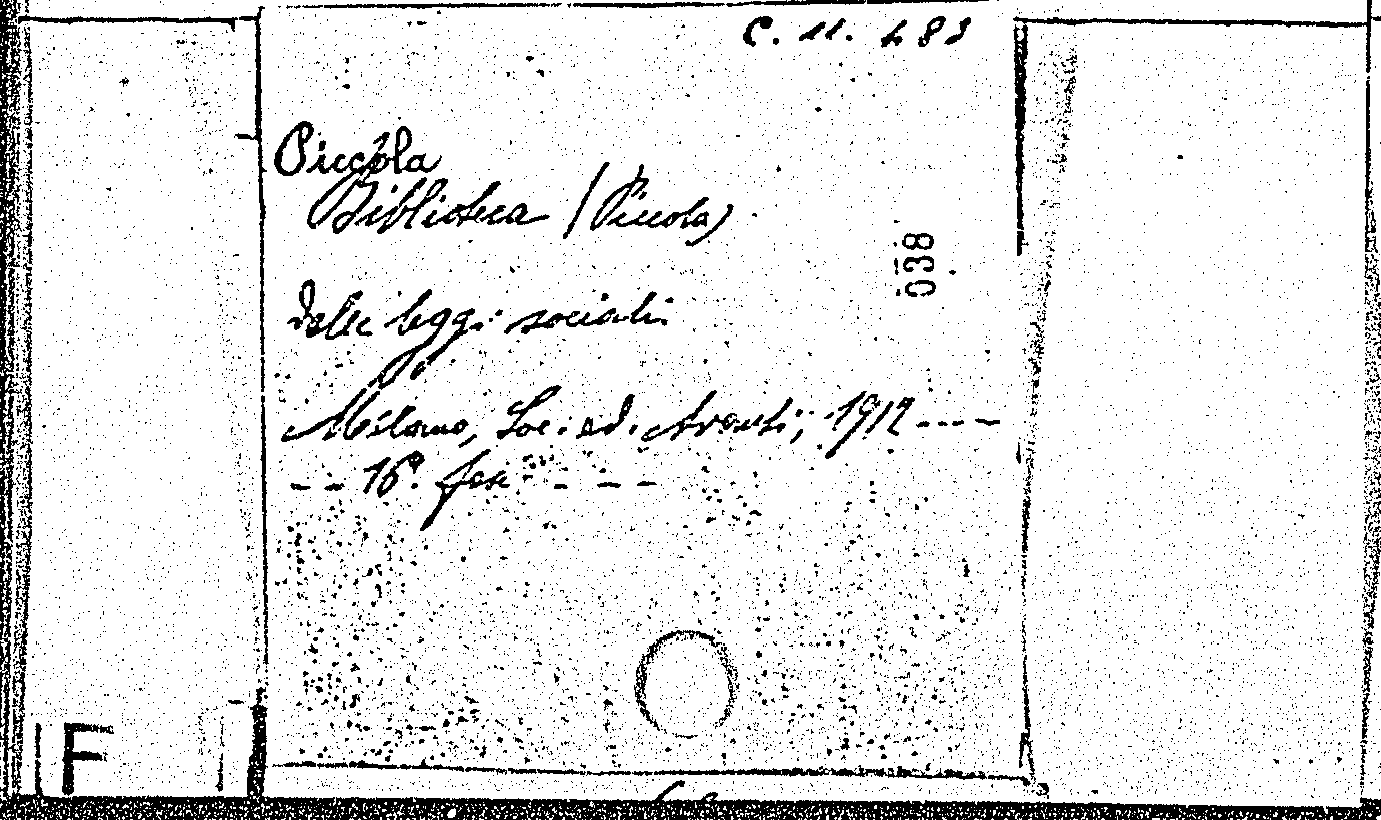 C. 11. 483
Piccola
Biblioteca (Piccola)
038
delle leggi sociali
Milano, Soc. ed. Avanti, 1912 - - - -
- - 16°. fasc - - -
F